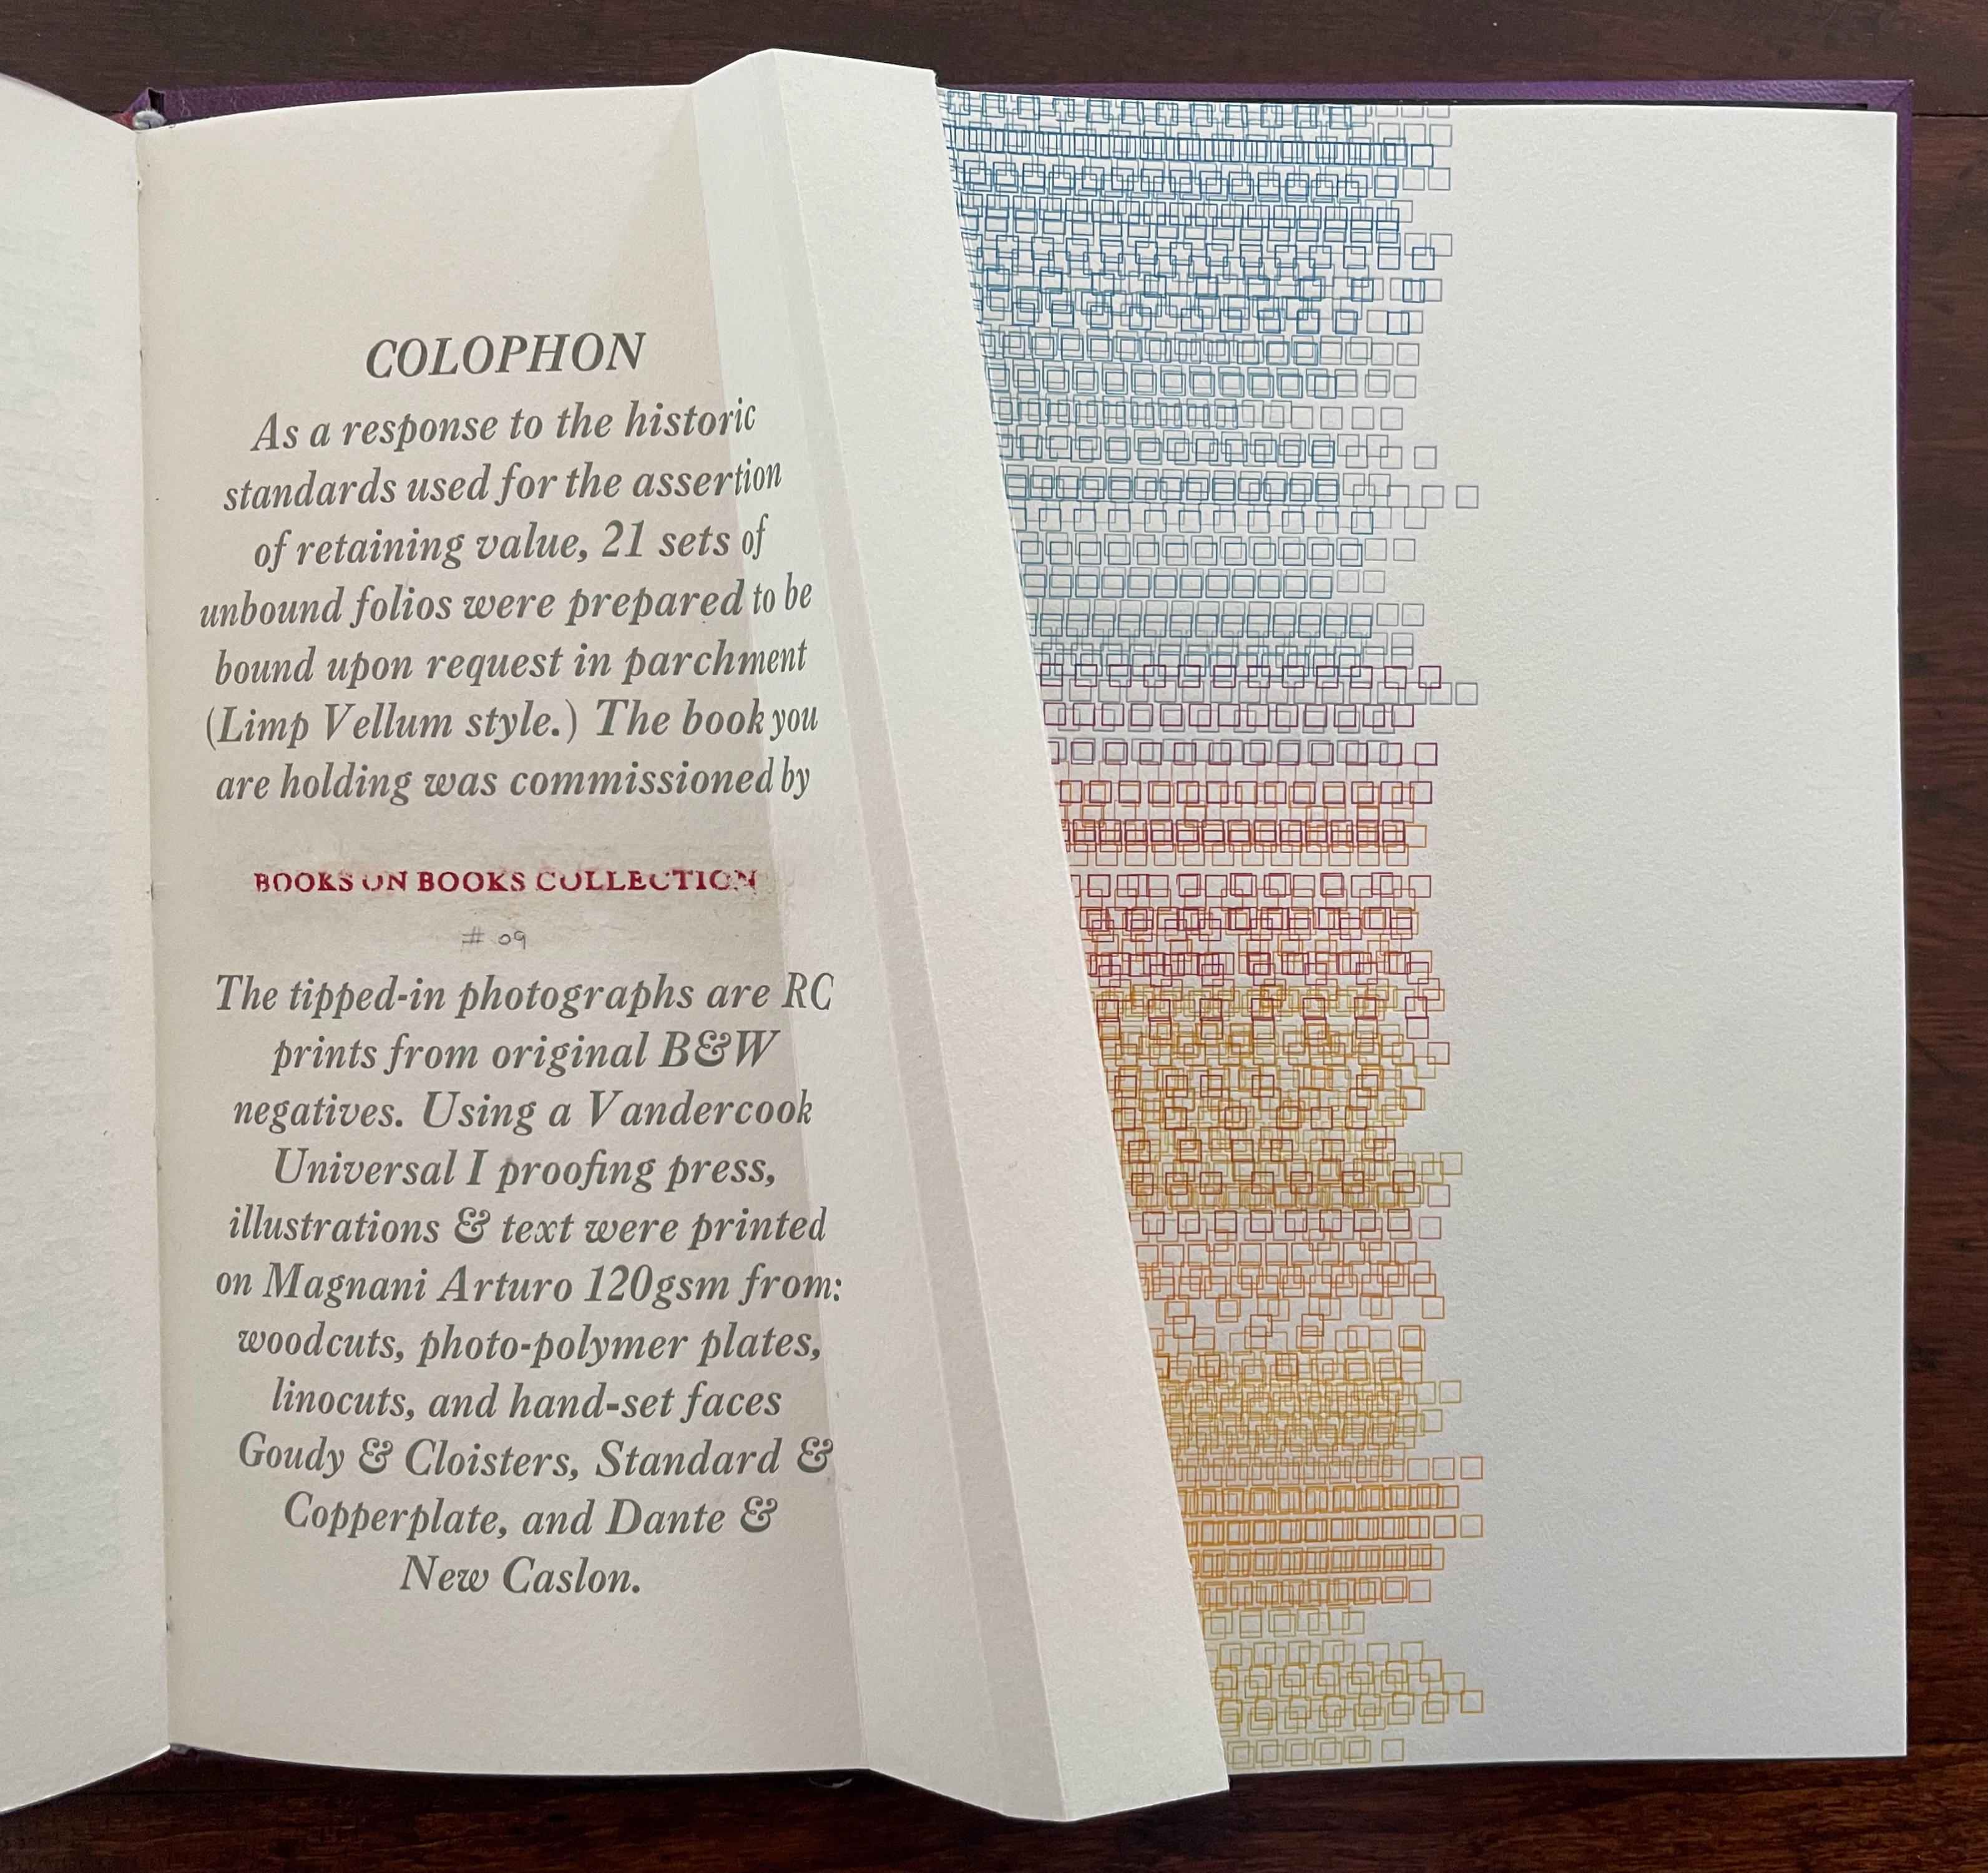 COLOPHON
As a response to the historic
standards used for the assertion
of retaining value, 21 sets of
unbound folios were prepared to be
bound upon request in parchment
(Limp Vellum style.) The book you
are holding was commissioned by
BOOKS ON BOOKS COLLECTION
# 09
The tipped-in photographs are RC
prints from original B&W
negatives. Using a Vandercook
Universal I proofing press,
illustrations & text were printed
on Magnani Arturo 120gsm from:
woodcuts, photo-polymer plates,
linocuts, and hand-set faces
Goudy & Cloisters, Standard &
Copperplate, and Dante &
New Caslon.